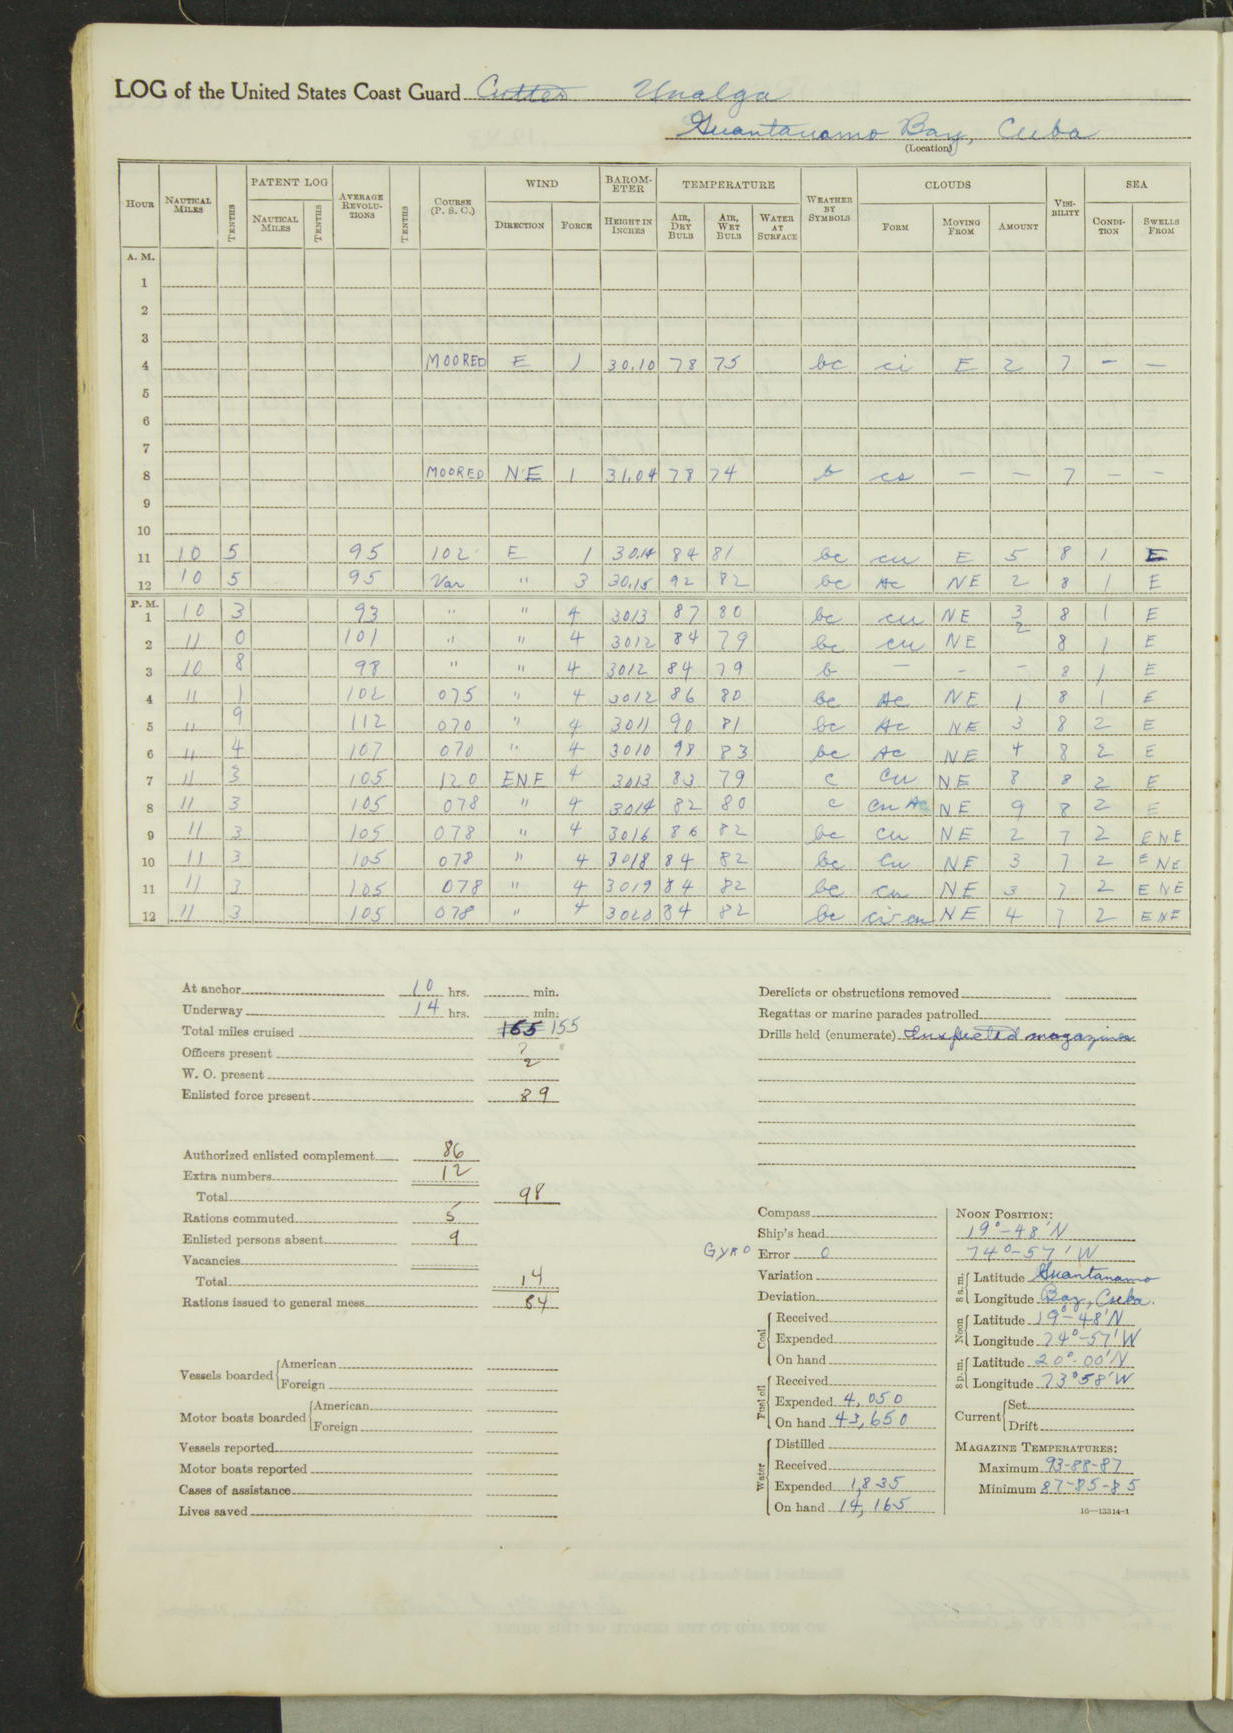 LOG of the United States Coast Guard Cutter Unalga
Guantanamo Bay, Cuba
(Location)
HOUR NAUTICAL MILES TENTHS PATENT LOG NAUTICAL MILES TENTHS AVERAGE REVOLUTIONS TENTHS COURSE (P. S. C.) WIND DIRECTION FORCE BAROMETER HEIGHT IN INCHES TEMPERATURE AIR, DRY BULB AIR, WET BULB WATER AT SURFACE WEATHER BY SYMBOLS CLOUDS FORM MOVING FROM AMOUNT VISIBILITY SEA CONDITION SWELLS FROM
A. M.
1
2
3
4 MOORED E 1 30.10 78 75 bc ci E 2 7 – –
5
6
7
8 MOORED NE 1 31.04 78 74 b cs – – 7 – –
9
10
11 10 5 95 102 E 1 30.14 84 81 bc cu E 5 8 1 E
12 10 5 95 Var " 3 30.15 92 82 bc Ac NE 2 8 1 E
P. M.
1 10 3 93 " " 4 3013 87 80 bc cu NE 3 8 1 E
2 11 0 101 " " 4 3012 84 79 bc cu NE 2 8 1 E
3 10 8 98 " " 4 3012 84 79 b – – – 8 1 E
4 11 1 102 075 " 4 3012 86 80 bc Ac NE 1 8 1 E
5 11 9 112 070 " 4 3011 90 81 bc Ac NE 3 8 2 E
6 11 4 107 070 " 4 3010 98 83 bc Ac NE 4 8 2 E
7 11 3 105 120 ENE 4 3013 83 79 c Cu NE 8 8 2 E
8 11 3 105 078 " 4 3014 82 80 c cu Ac NE 9 8 2 E
9 11 3 105 078 " 4 3016 86 82 bc Cu NE 2 7 2 ENE
10 11 3 105 078 " 4 3018 84 82 bc Cu NE 3 7 2 ENE
11 11 3 105 078 " 4 3019 84 82 bc cu NE 3 7 2 ENE
12 11 3 105 078 " 4 3020 84 82 bc ci cu NE 4 7 2 ENE
At anchor 10 hrs. min.
Underway 14 hrs. min.
Total miles cruised 165 155
Officers present 7
W. O. present 2
Enlisted force present 89
Authorized enlisted complement 86
Extra numbers 12
Total 98
Rations commuted 5
Enlisted persons absent 9
Vacancies
Total 14
Rations issued to general mess 84
Vessels boarded American
Foreign
Motor boats boarded American
Foreign
Vessels reported
Motor boats reported
Cases of assistance
Lives saved
Derelicts or obstructions removed
Regattas or marine parades patrolled
Drills held (enumerate) Inspected magazines
Compass
Ship's head
GYRO Error 0
Variation
Deviation
Coal Received
Expended
On hand
Fuel oil Received
Expended 4,050
On hand 43,650
Water Distilled
Received
Expended 1,835
On hand 14,165
NOON POSITION:
19°-48'N
74°-57'W
8 a.m. Latitude Guantanamo
Longitude Bay, Cuba.
Noon Latitude 19°-48'N
Longitude 74°-57'W
8 p.m. Latitude 20°-00'N
Longitude 73°58'W
Current Set
Drift
MAGAZINE TEMPERATURES:
Maximum 93-88-87
Minimum 87-85-85
16—13314-1